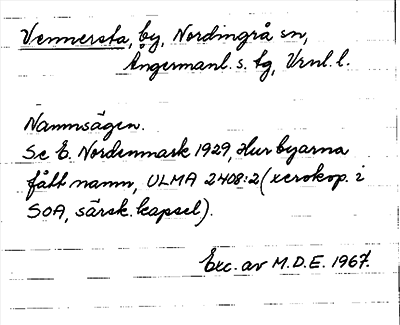 Vennersta, by, Nordingrå sn,
Ångermanl. s. tg, Vrnl. l.
Namnsägen.
Se E. Nordenmark 1929, Hur byarna
fått namn, ULMA 2408:2 (xerokop. i
SOA, särsk. kapsel).
Exc. av M.D.E. 1967.